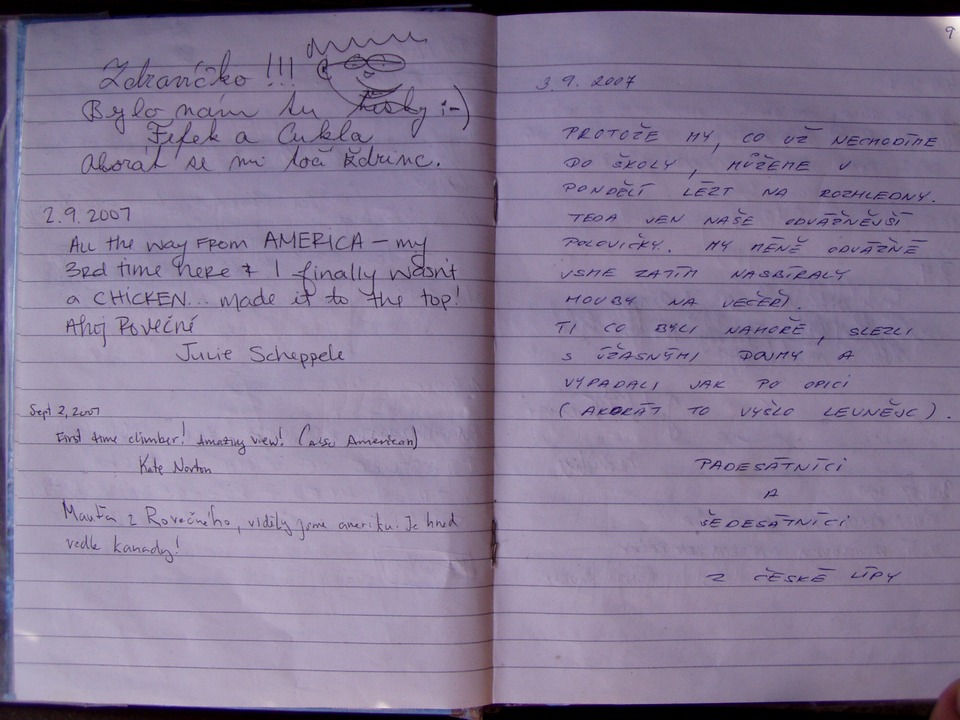 Zdravíčko !!!
Bylo nám tu hezky ;-)
Fifek a Cukla
akorát se mi točí
2.9.2007
All the way from AMERICA – my
3rd time here & I finally wasn't
a CHICKEN... made it to the top!
Ahoj Rovečné
Julie Scheppele
Sept 2, 2007
First time climber! Amazing view! (also American)
Kate Norton
z Rovečného, viděly jsme ameriku. Je hned
vedle kanady!
9
3.9.2007
PROTOŽE MY, CO UŽ NECHODÍME
DO ŠKOLY, MŮŽEME V
PONDĚLÍ LÉZT NA ROZHLEDNY.
TEDA JEN NAŠE ODVÁŽNĚJŠÍ
POLOVIČKY. MY MÉNĚ ODVÁŽNÉ
JSME ZATÍM NASBÍRALY
HOUBY NA VEČEŘI.
TI CO BYLI NAHOŘE, SLEZLI
S ÚŽASNÝMI DOJMY A
VYPADALI JAK PO OPICI
(AKORÁT TO VYŠLO LEVNĚJC).
PADESÁTNÍCI
A
ŠEDESÁTNÍCI
Z ČESKÉ LÍPY